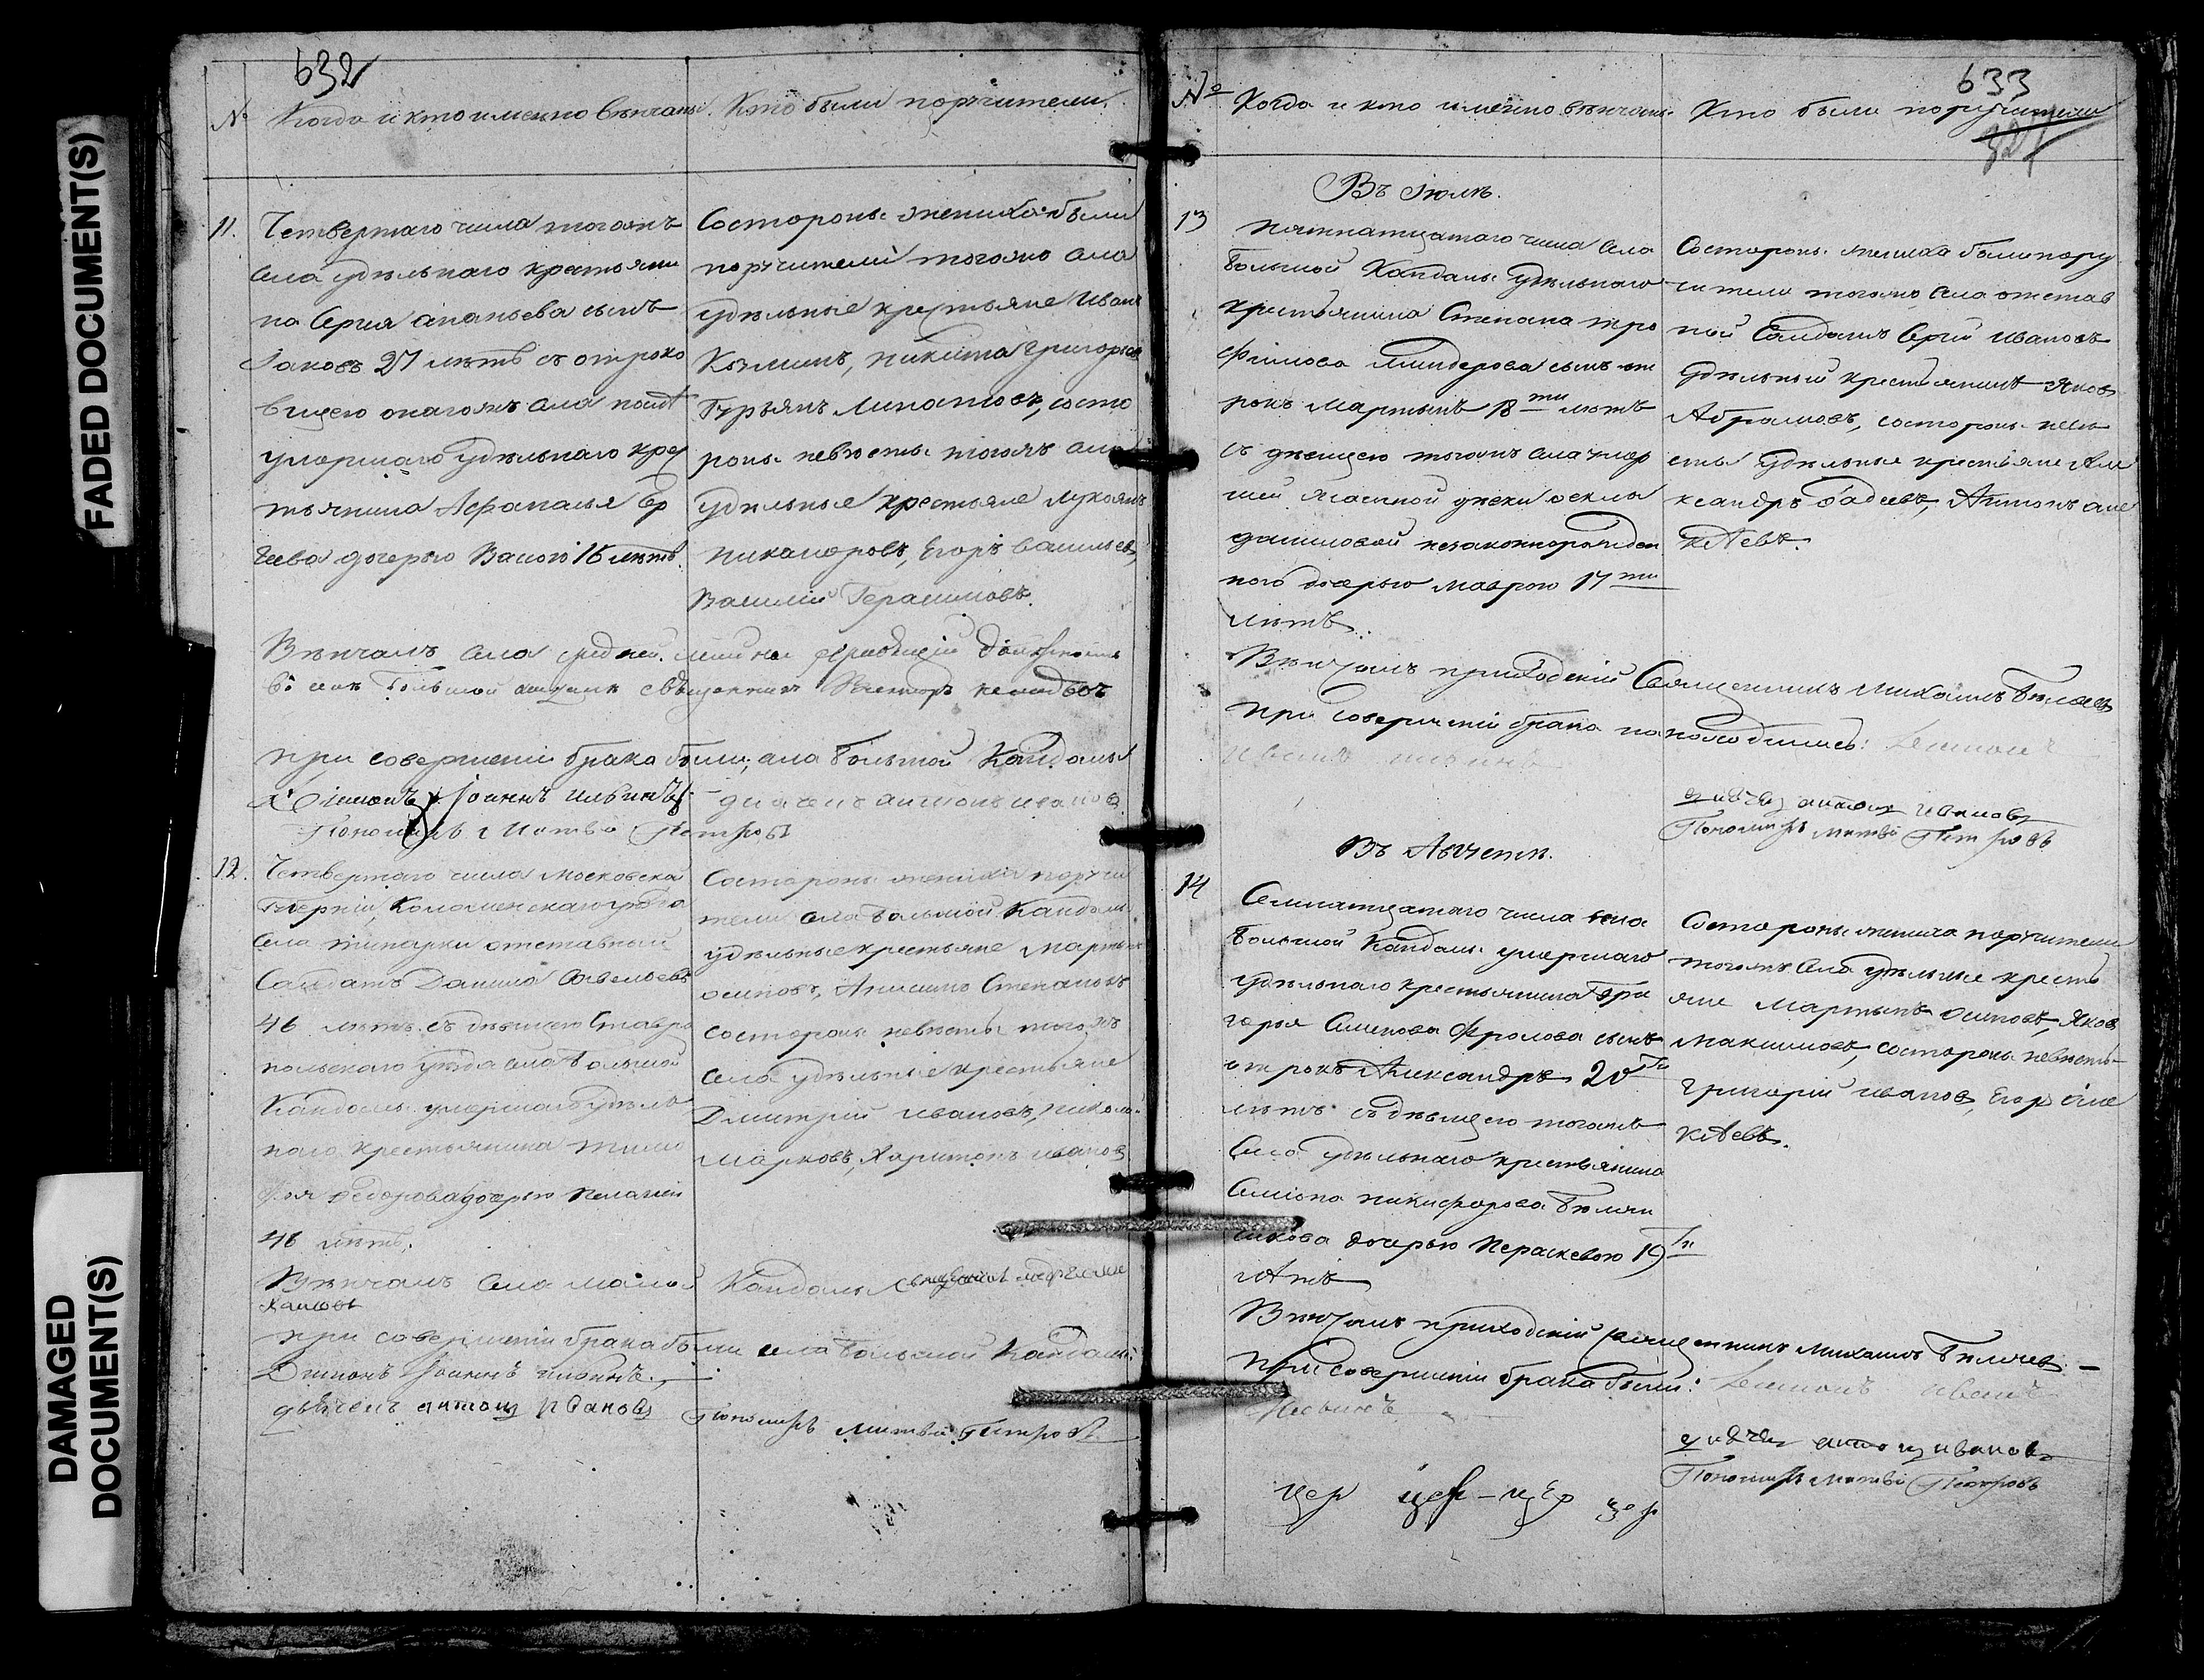 FADED DOCUMENT(S)
DAMAGED
DOCUMENT(S)
632
№ Когда и кто именно венчаны. Кто были поручители.
11. Четвертаго числа тогожъ
села удѣльнаго крестьяни
на Сергия Ананьева сынъ
Іаковъ 27 лѣтъ съ отроко
вицею онагожъ села
умершаго удѣльнаго крес
тьянина Афанасья Ер
геева дочерью 16 лѣтъ.
Состороны жениха были
поручители тогожъ села
удѣльные крестьяне Иванъ
Козминъ, Никита Григорьевъ
Гурьянъ Липатовъ, состо
роны невѣсты тогожъ села
удѣльные крестьяне Лукоянъ
Никаноровъ, Егоръ Васильевъ,
Василий Герасимовъ.
Вѣнчалъ села средней
въ селѣ Большой священникъ
при совершеніи брака были, села Большой Кандалы
Іоаннъ Ильинъ дьячекъ антонъ ивановъ
Пономарь Матвей Петровъ
12. Четвертаго числа Московской
Губерніи, Коломенскаго уѣзда
села отставный
Салдатъ Данила Савельевъ
46 лѣтъ съ дѣвицею Ставро
польскаго уѣзда села Большой
Кандалы умершаго удѣль
наго крестьянина Тимо
фея Федорова дочерью Пелагіей
46 лѣтъ.
Состороны жениха поручи
тели села Большой Кандалы
удѣльные крестьяне Мартынъ
осиповъ, Анисимъ Степановъ
состороны невѣсты тогожъ
села удѣльные крестьяне
Дмитрий Ивановъ, Никола
Марковъ, Харитонъ ивановъ
Вѣнчалъ села малой Кандалы священникъ
при совершеніи брака были села Большой Кандалы:
Іоаннъ ильинъ,
дьячекъ антонъ ивановъ Пономарь Матвей Петровъ
633
№ Когда и кто именно вѣнчаны. Кто были поручители
327
Въ Іюлѣ.
13 Пятнатцатаго числа села
Большой Кандалы Удѣльнаго
крестьянина Степана Тро
фимова сынъ от
рокъ Мартынъ 18ти лѣтъ
съ дѣвицею тогожъ села умер
шей девки Феклы
даниловой незаконнорожден
ною дочерью Маврою 17ти
лѣтъ.
Состороны жениха были пору
чители тогожъ села отстав
ной Салдатъ Сергий Ивановъ
Удѣльный крестьянинъ Яковъ
Абрамовъ, состороны невѣ
сты Удѣльные крестьяне Але
ксандръ Фадеевъ, Антонъ але
ксѣевъ.
Вѣнчалъ приходский Священникъ Михаилъ
При совершеніи брака находились:
Иванъ ильинъ
дьячекъ антонъ ивановъ
Пономарь Матвей Петровъ
Въ Августѣ.
14 Семнатцатаго числа села
Большой Кандалы умершаго
удѣльнаго крестьянина Гри
горья Семенова Фролова сынъ
отрокъ Александръ 20ти
лѣтъ съ дѣвицею тогожъ
Села удѣльнаго крестьянина
Семіона Никифорова
дочерью Пераскевою 19ти
лѣтъ
Состороны жениха поручители
тогожъ Села удѣльные кресть
яне Мартынъ Осиповъ, Яковъ
Максимовъ, состороны невѣсты
Григорий ивановъ, Егоръ але
ксѣевъ.
Вѣнчалъ приходский священникъ Михаилъ
При совершеніи брака были: Иванъ
Ильинъ
дьячекъ антонъ ивановъ
Пономарь Матвей Петровъ
цер цер - цер цер